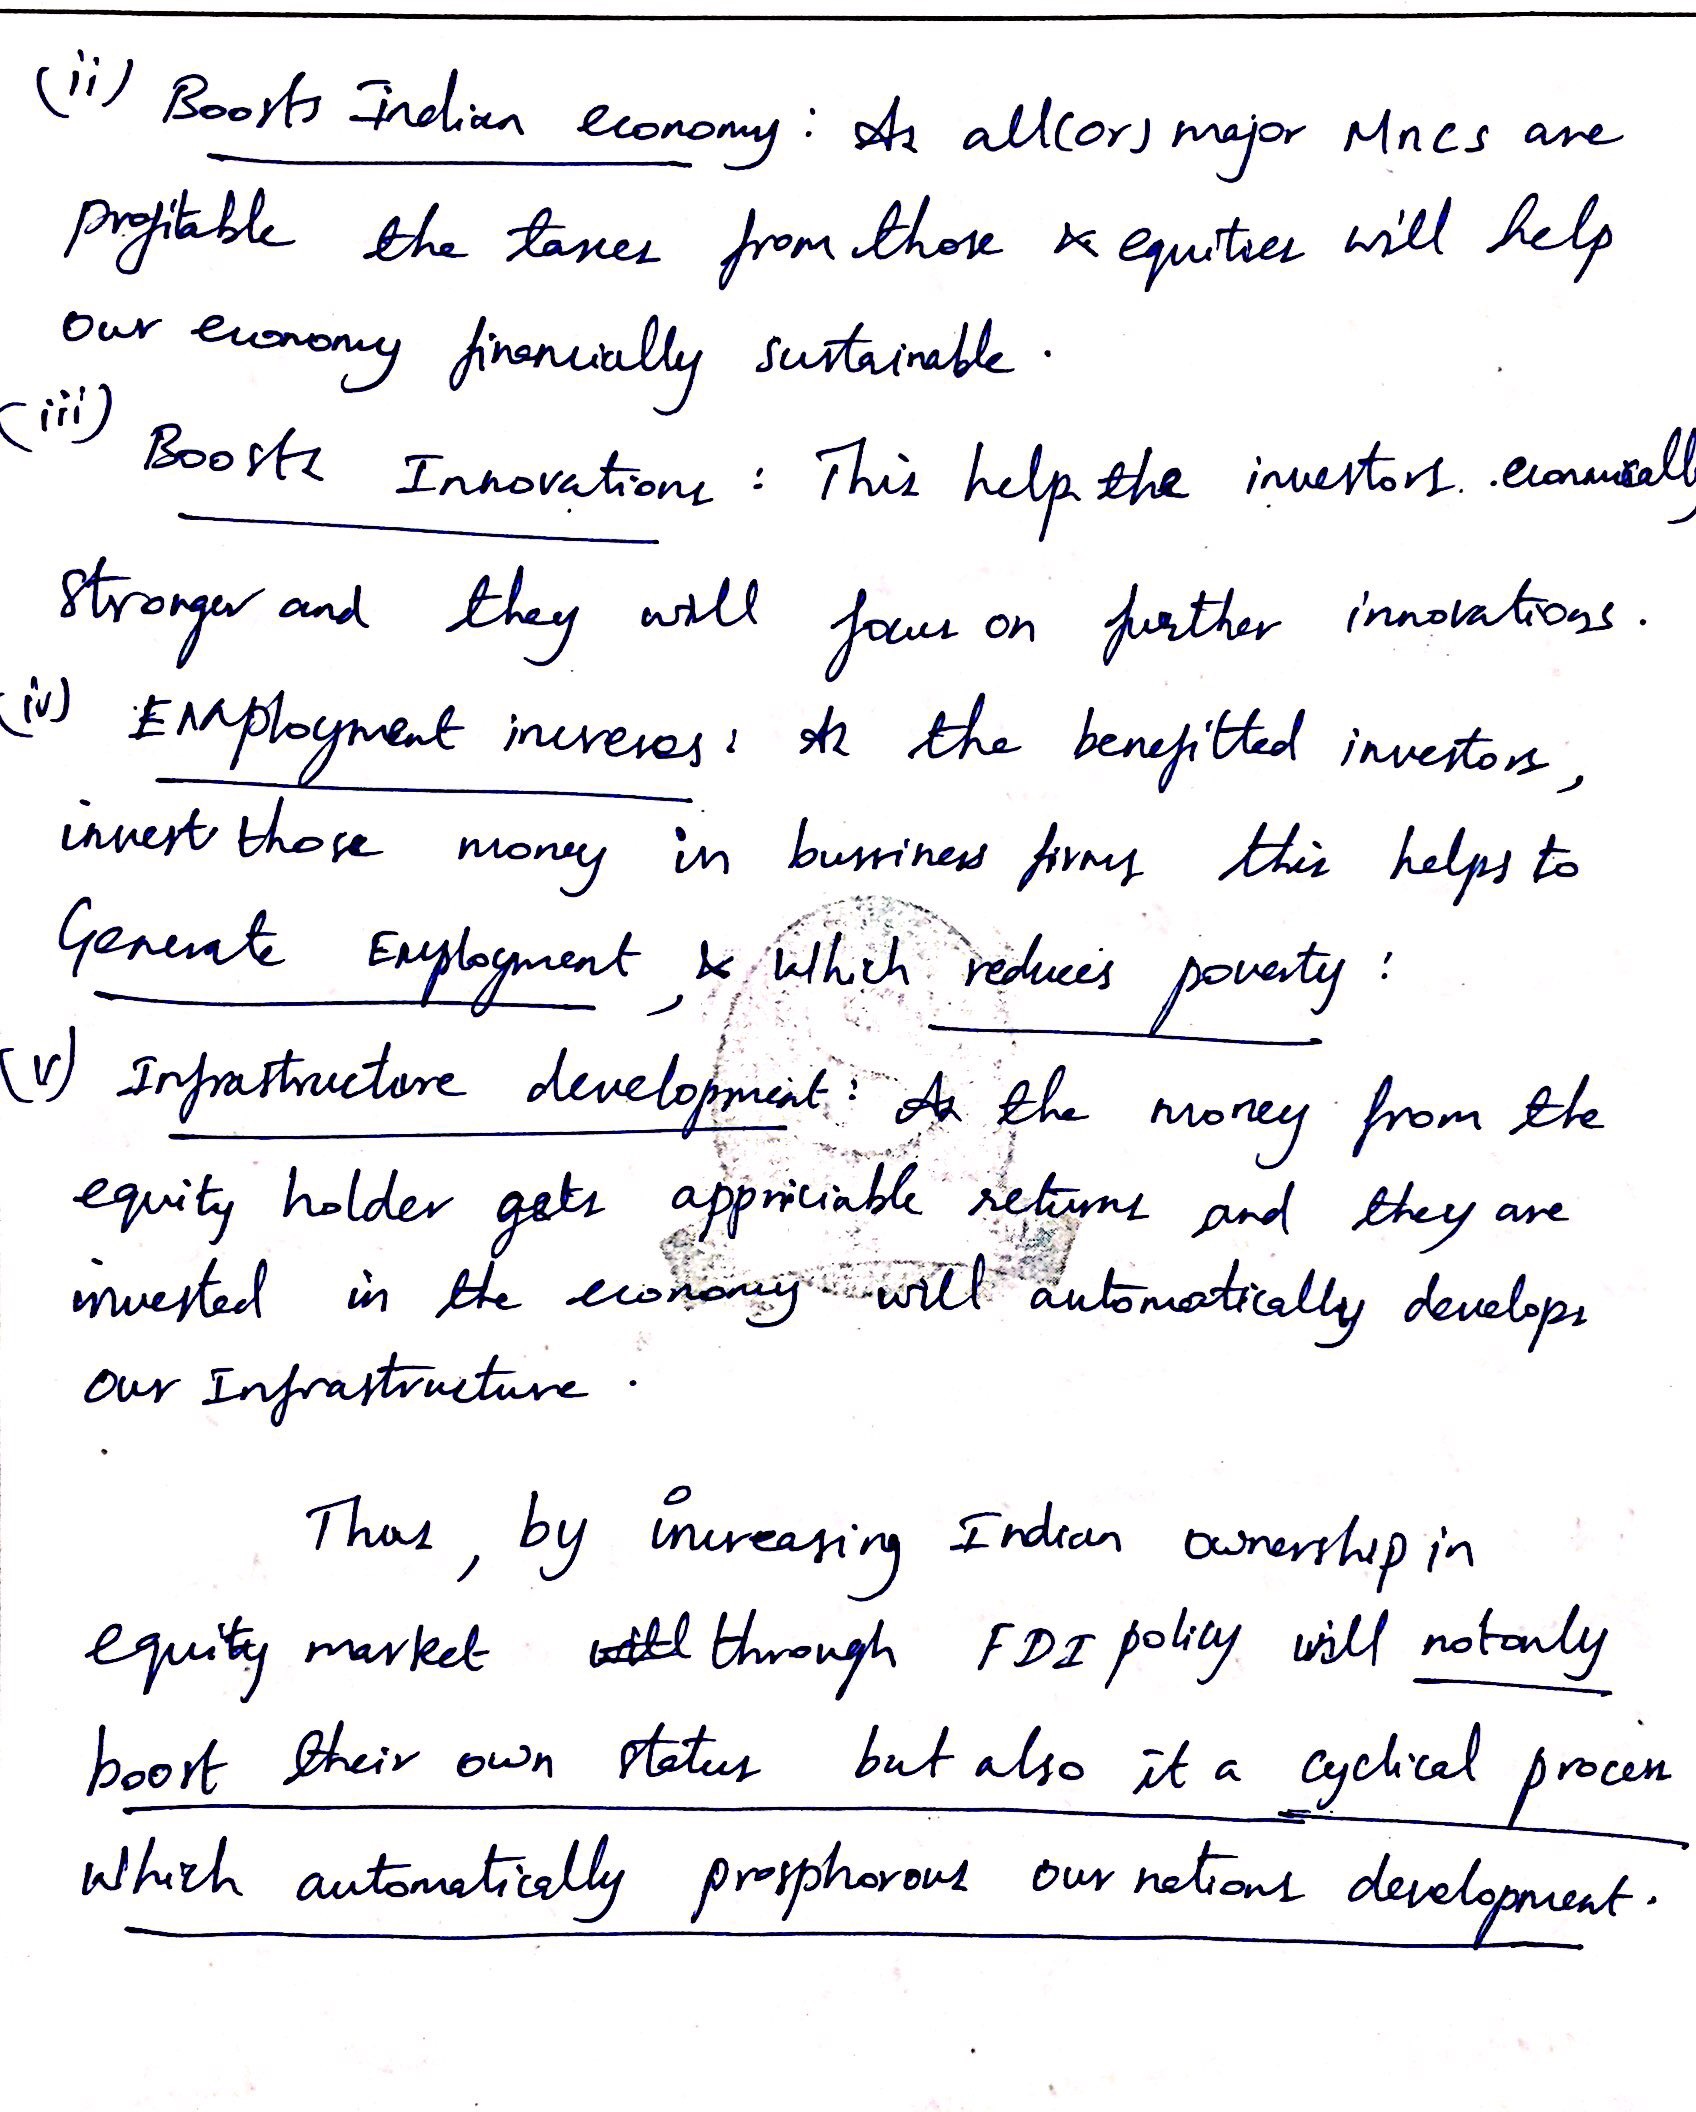 (ii) Boosts Indian economy : As all(or) major Mncs are
profitable the taxes from those & equities will help
our economy financially sustainable .
(iii) Boosts Innovations : This help the investors economically
stronger and they will focus on further innovations .
(iv) Employment increses : As the benefitted investors,
invest those money in bussiness firms this helps to
Generate Employment , & which reduces poverty :
(v) Infrastructure development : As the money from the
equity holder gets appriciable returns and they are
invested in the economy will automatically develops
our Infrastructure .
Thus , by increasing Indian ownership in
equity market through FDI policy will not only
boost their own status but also it a cyclical process
which automatically prosphorous our nations development .